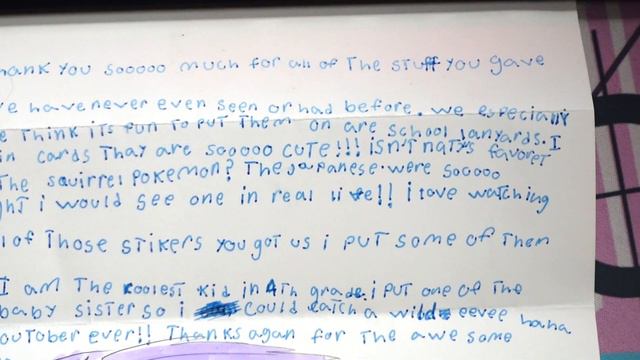 hank you sooooo much for all of the stuff you gave
e have never even seen or had before. we especially
e think its fun to put them on are school lanyards. I
in cards thay are sooooo cute!!! isn't natys favoret
The squirrel pokemon? The Japanese were sooooo
ht i would see one in real live!! i love watching
l of those stikers you got us i put some of them
I am the coolest kid in 4th grade. i put one of the
baby sister so i could catch a wild eevee haha
outober ever!! Thanks agan for the awe some